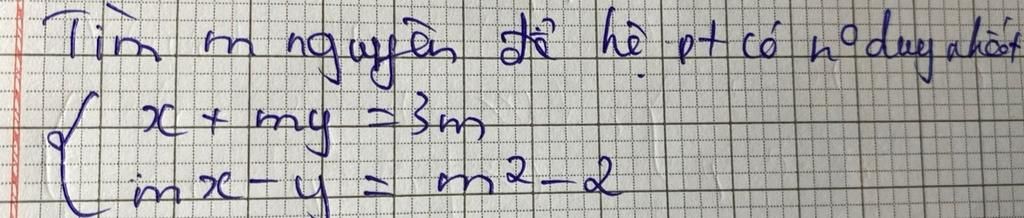 Tìm m nguyên để hệ pt có nº duy nhất
x + my = 3m
mx - y = m² - 2